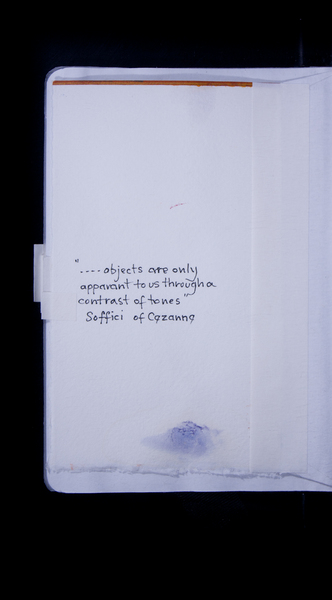 "....objects are only
apparant to us through a
contrast of tones"
Soffici of Cezanne